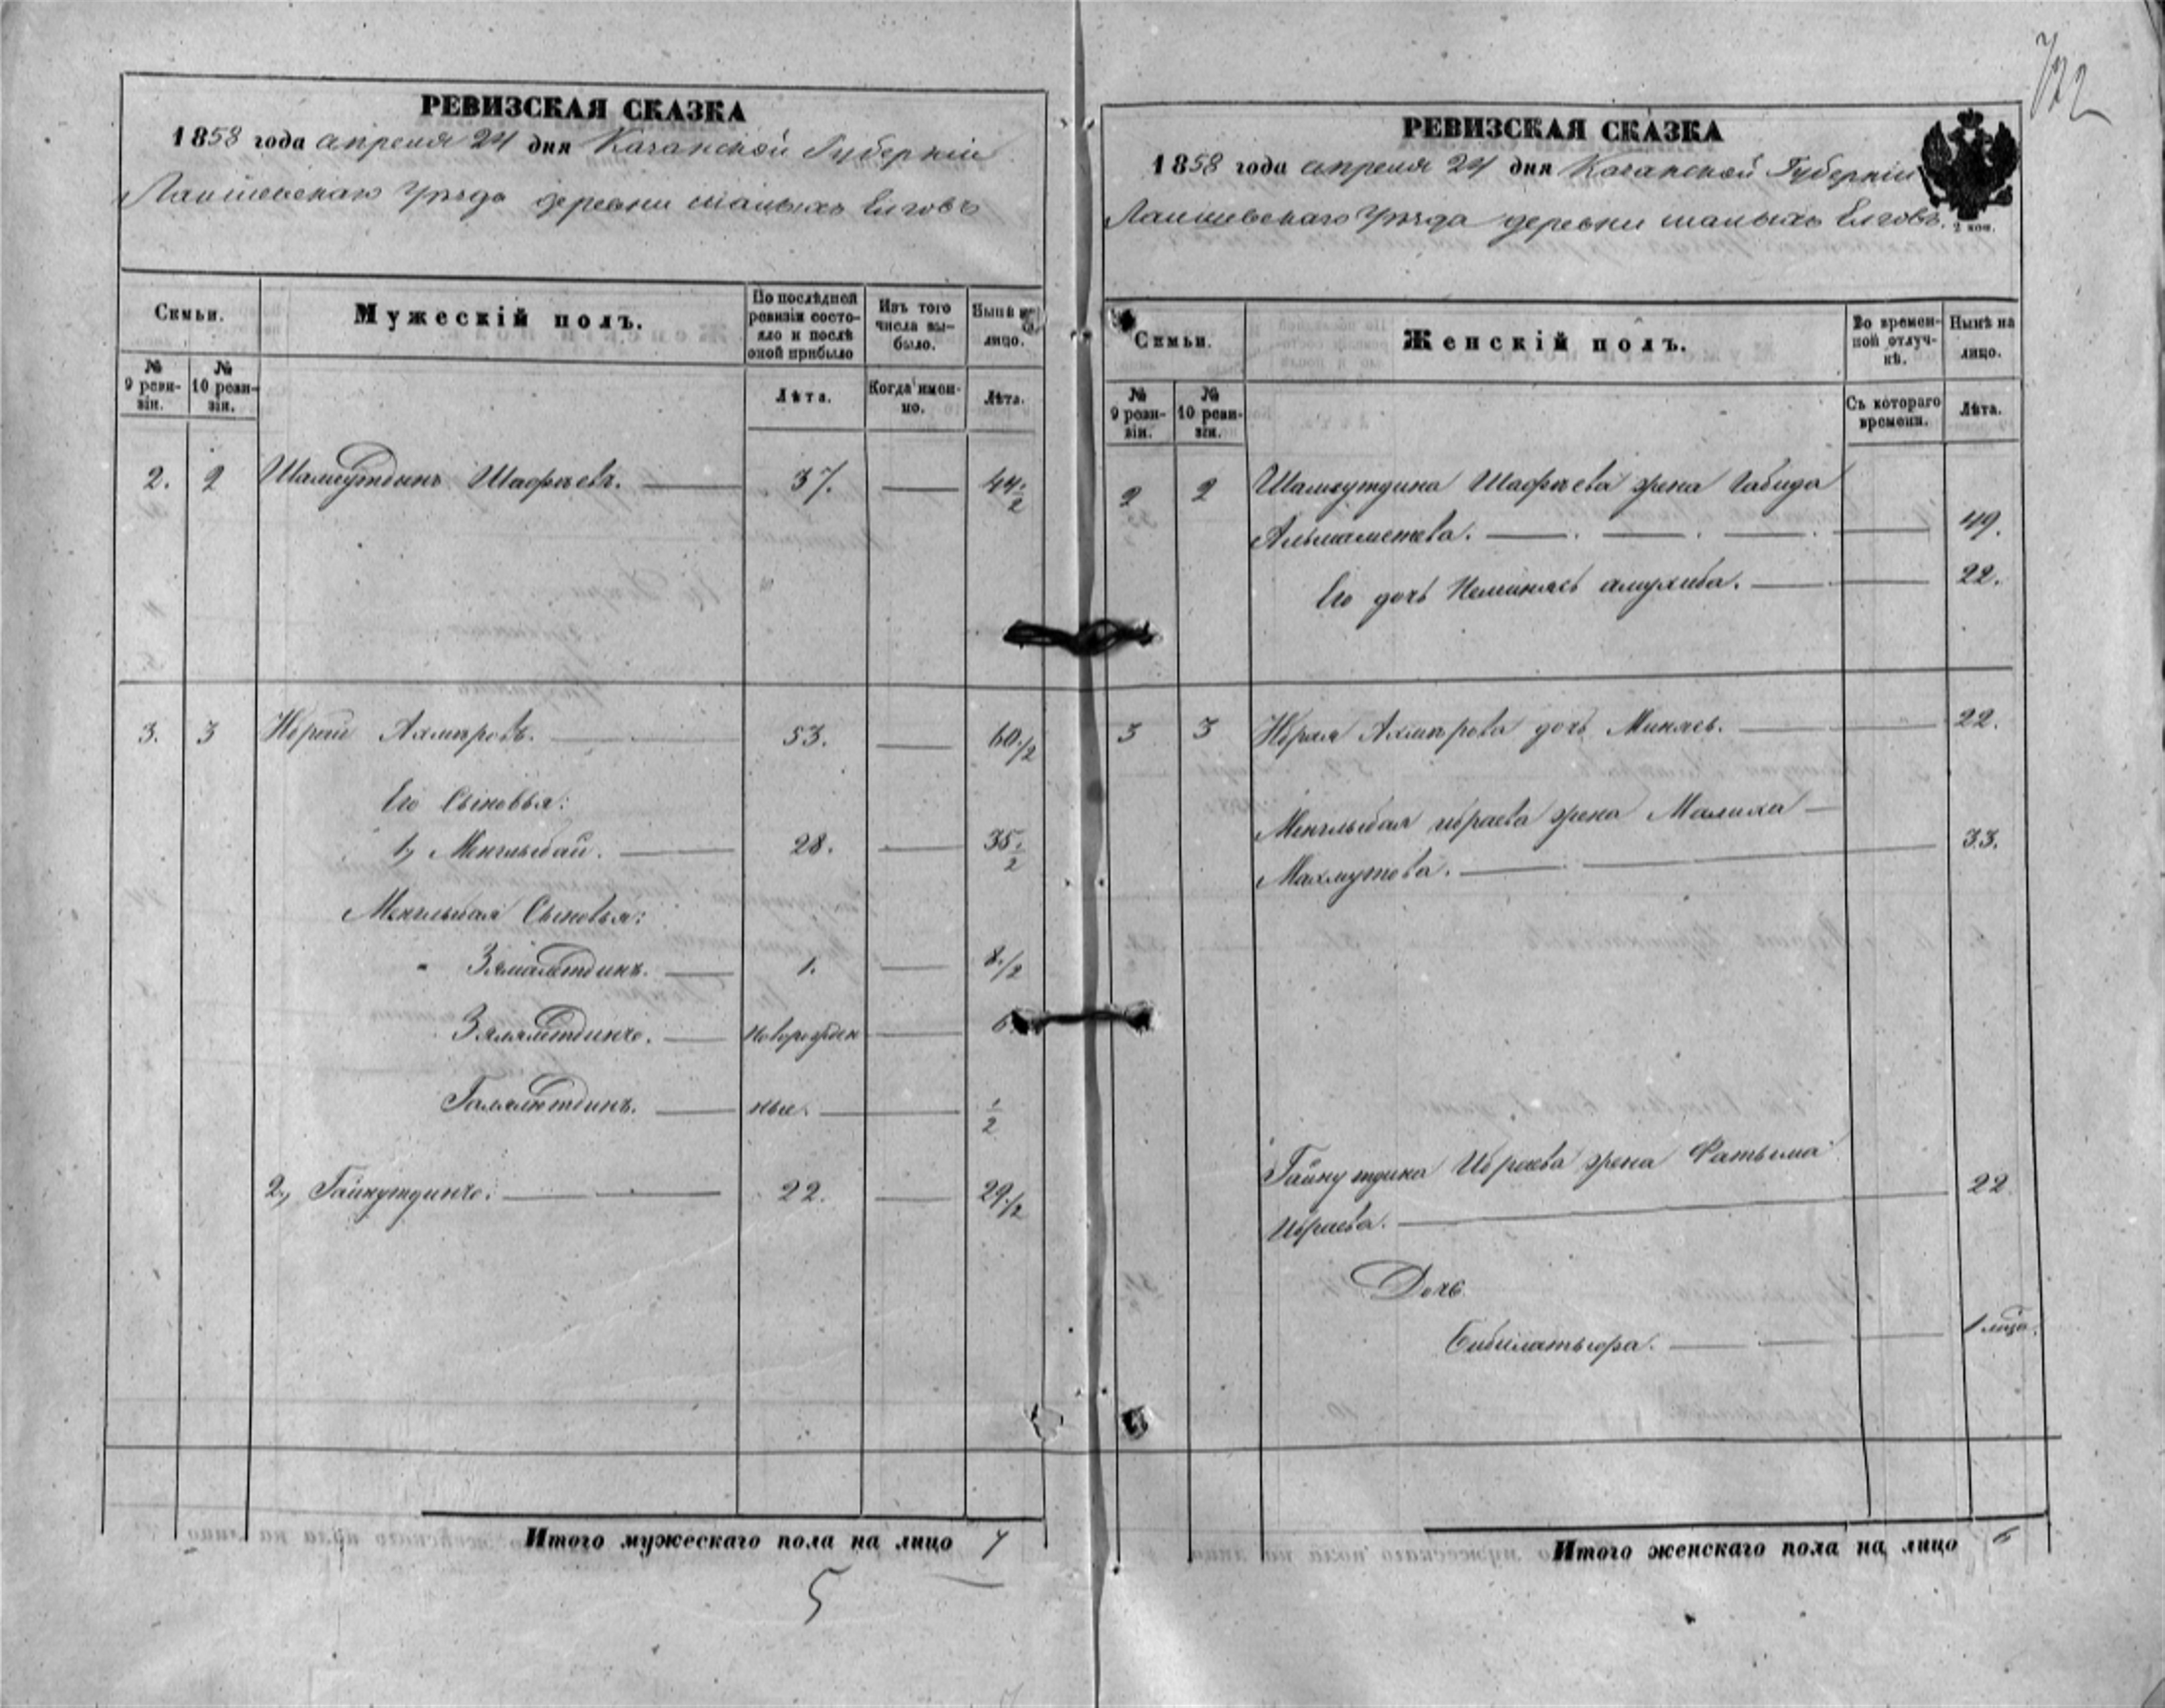 722
РЕВИЗСКАЯ СКАЗКА
1858 года апреля 24 дня Казанской Губерніи
Лаишевскаго Уѣзда деревни малыхъ Елговъ
Семьи.
№ 9 ревизіи.
№ 10 ревизіи.
Мужескій полъ.
По послѣдней ревизіи состояло и послѣ оной прибыло
Лѣта.
Изъ того числа выбыло.
Когда именно.
Нынѣ на лицо.
Лѣта.
2. 2 Шамсутдинъ Шафѣевъ. 37. 44 1/2
3. 3 Ибрай Ахмѣровъ. 53. 60 1/2
Его Сыновья:
1, Менглыбай. 28. 35 1/2
Менглыбая Сыновья:
Зямалетдинъ. 1. 8 1/2
Зялялетдинъ. новорожден 6
Галялетдинъ. ные. 1/2
2, Гайнутдинъ. 22. 29 1/2
Итого мужескаго пола на лицо 7
5
РЕВИЗСКАЯ СКАЗКА
1858 года апреля 24 дня Казанской Губерніи
Лаишевскаго Уѣзда деревни малыхъ Елговъ.
2 коп.
Семьи.
№ 9 ревизіи.
№ 10 ревизіи.
Женскій полъ.
Во временной отлучкѣ.
Съ котораго времени.
Нынѣ на лицо.
Лѣта.
2 2 Шамсутдина Шафѣева жена Габида
Альмаметева. 49.
Его дочь амухиба. 22.
3 3 Ибрая Ахмѣрова дочь Минясь. 22.
Менглыбая ибраева жена Малика
Махмутова. 33.
Гайнутдина Ибраева жена Фатыма
Ибраева. 22
Дочь
1
Итого женскаго пола на лицо 6